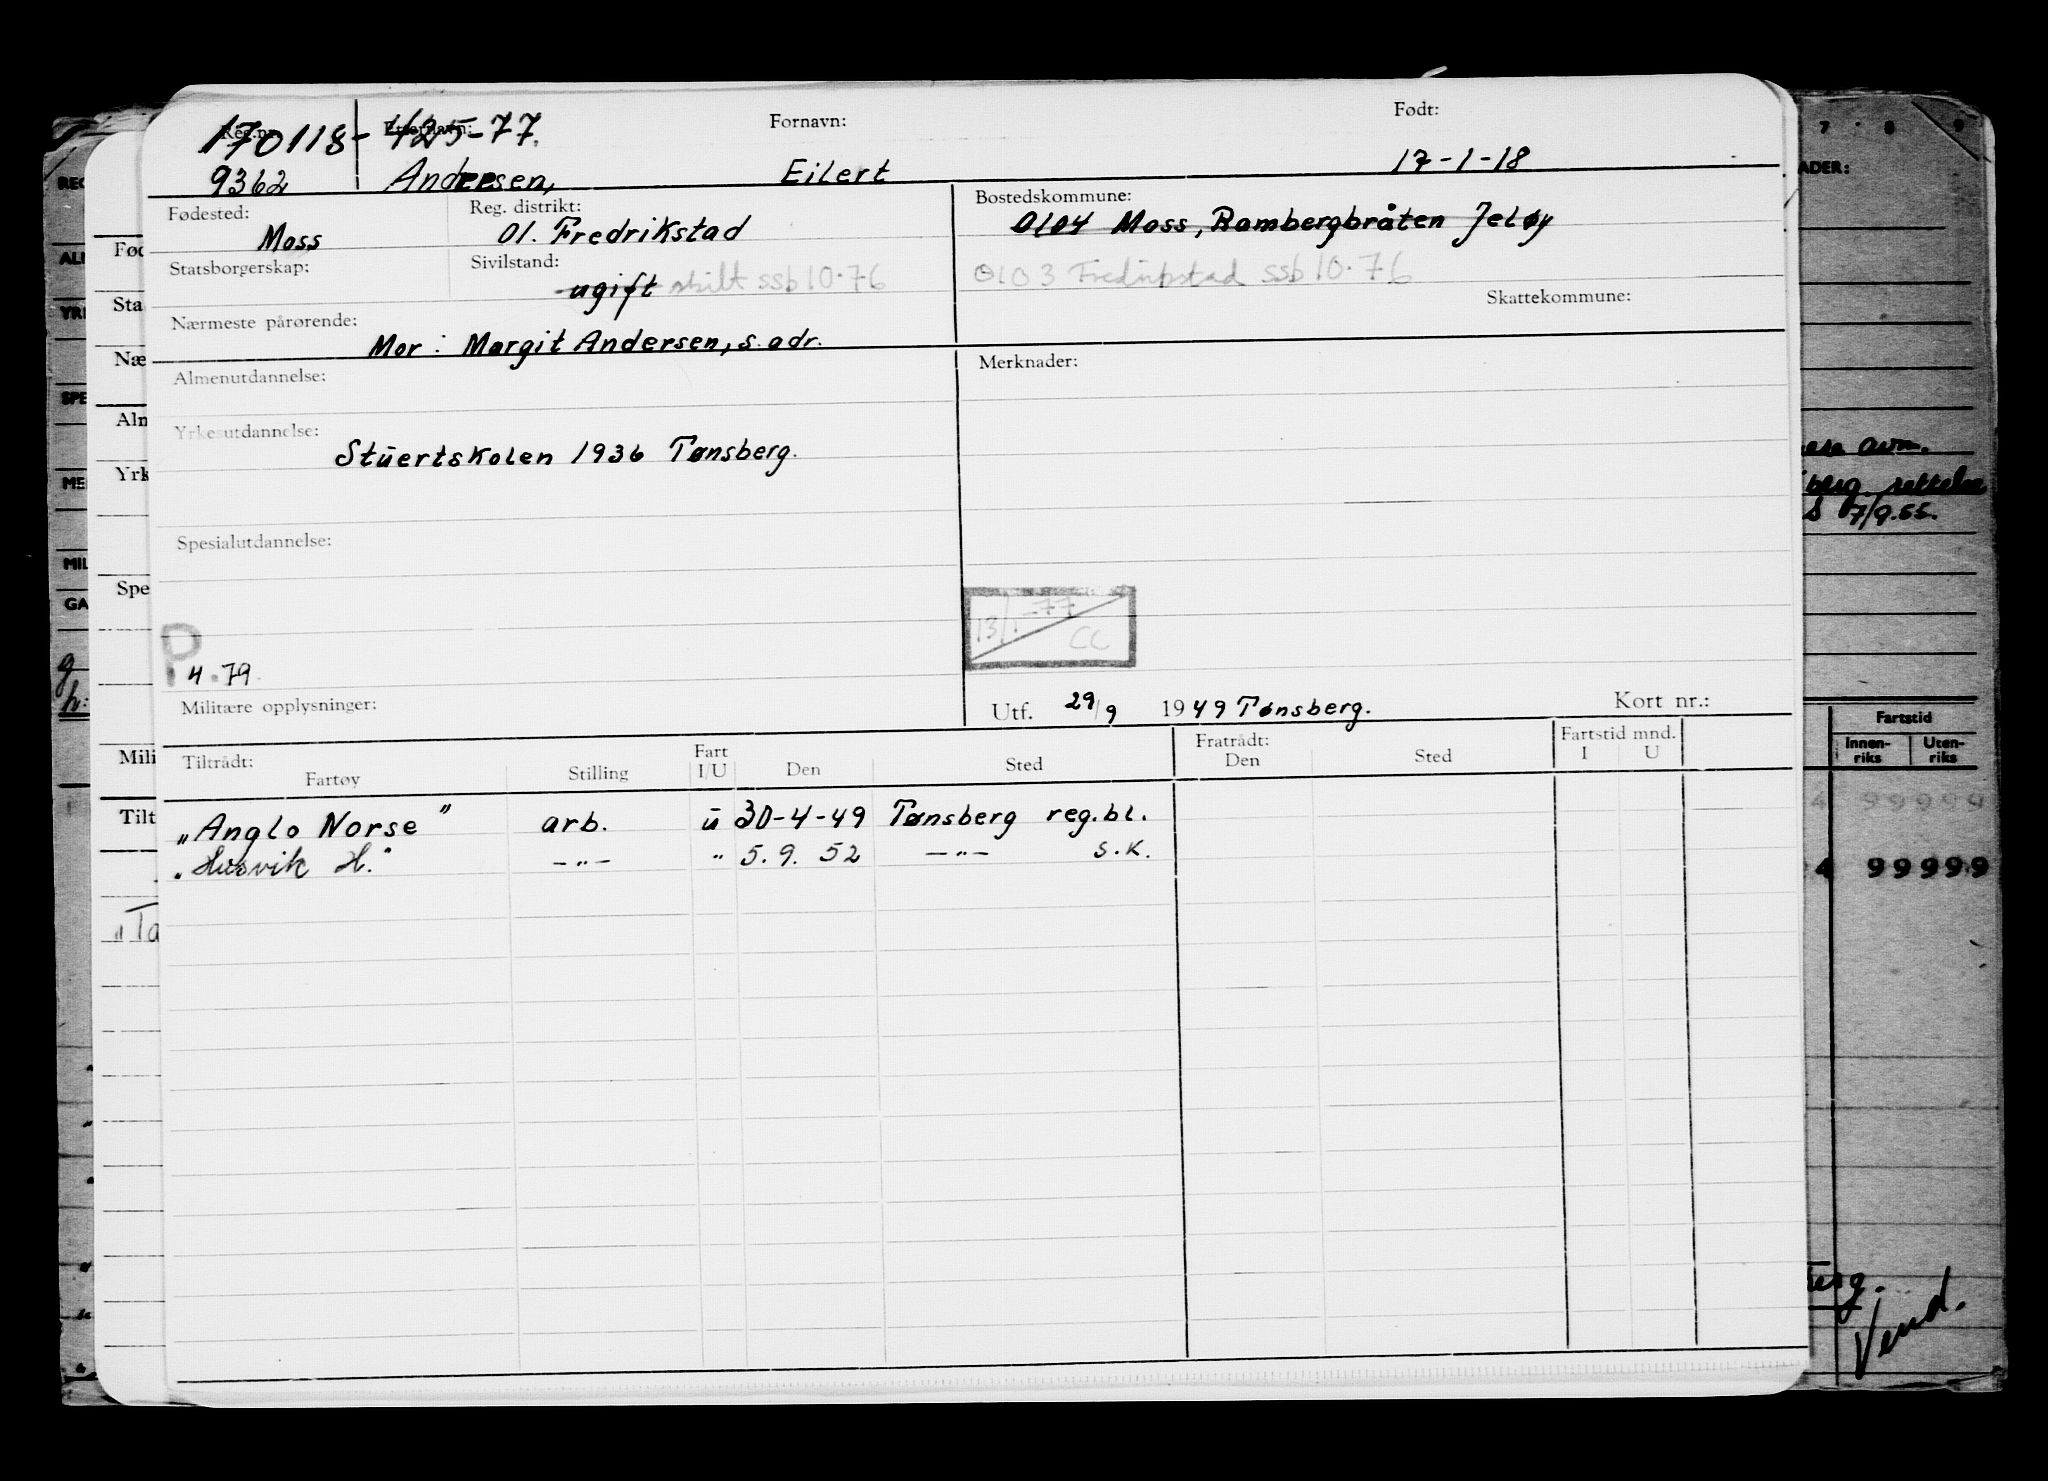 170118-425-77.
Reg.nr. Etternavn: Fornavn: Født:
9362 Andersen, Eilert 17-1-18
Fødested: Reg. distrikt: Bostedskommune:
Moss 01. Fredrikstad 0104 Moss, Rambergbråten Jeløy
Statsborgerskap: Sivilstand:
ugift skilt ssb 10.76 0103 Fredrikstad ssb 10.76
Skattekommune:
Nærmeste pårørende:
Mor: Margit Andersen, s. adr.
Almenutdannelse: Merknader:
Yrkesutdannelse:
Stuertskolen 1936 Tønsberg.
Spesialutdannelse:
13/1-77
CC
P
4.79.
Militære opplysninger: Utf. 29/9 1949 Tønsberg. Kort nr.:
Tiltrådt: Fratrådt: Fartstid mnd.
Fartøy Stilling Fart I/U Den Sted Den Sted I U
"Anglo Norse" arb. u 30-4-49 Tønsberg reg.bl.
"Husvik H." -"- " 5. 9. 52 -"- s.k.
7 8 9
ADER:
avm.
berg. rettelse
7/9.55.
Fartstid
Innen-riks Uten-riks
4 99999
4 99999
Vend.
REG
Fød
Sta
Næ
SPE
Aln
Yrk
MIL
GA
Spe
Mili
Tilt
"Ta